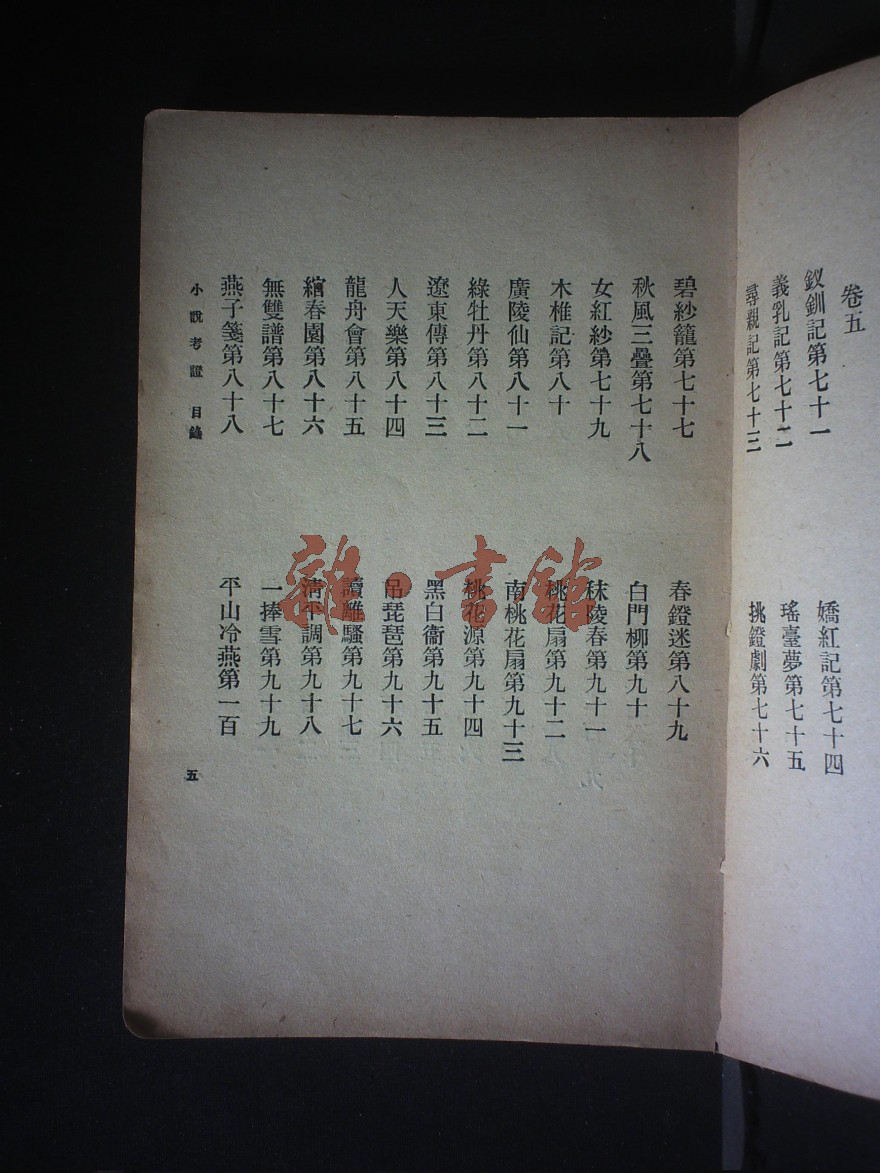 卷五
釵釧記第七十一
義乳記第七十二
尋親記第七十三
嬌紅記第七十四
瑤臺夢第七十五
挑鐙劇第七十六
碧紗籠第七十七
秋風三疊第七十八
女紅紗第七十九
木椎記第八十
廣陵仙第八十一
綠牡丹第八十二
遼東傳第八十三
人天樂第八十四
龍舟會第八十五
繪春園第八十六
無雙譜第八十七
燕子箋第八十八
春鐙迷第八十九
白門柳第九十
秣陵春第九十一
桃花扇第九十二
南桃花扇第九十三
桃花源第九十四
黑白衞第九十五
吊琵琶第九十六
讀離騷第九十七
清平調第九十八
一捧雪第九十九
平山冷燕第一百
小說考證 目錄
五
雜·書館